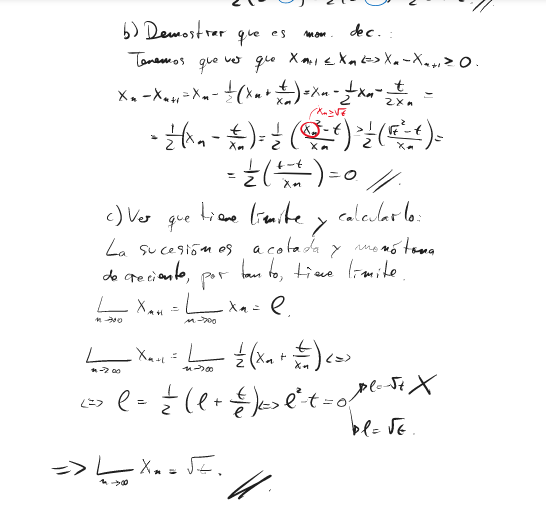 b) Demostrar que es mon. dec.:
Tenemos que ver que Xn+1 ≤ Xn <=> Xn - Xn+1 ≥ 0.
Xn - Xn+1 = Xn - 1/2 (Xn + t/Xn) = Xn - 1/2 Xn - t/2Xn =
Xn ≥ √t
= 1/2 (Xn - t/Xn) = 1/2 (Xn² - t/Xn) ≥ 1/2 (√t² - t/Xn) =
= 1/2 (t - t/Xn) = 0 //.
c) Ver que tiene límite y calcularlo:
La sucesión es acotada y monótona
decreciente, por tanto, tiene límite.
Lim n→∞ Xn+1 = Lim n→∞ Xn = l.
Lim n→∞ Xn+1 = Lim n→∞ 1/2 (Xn + t/Xn) <=>
<=> l = 1/2 (l + t/l) <=> l² - t = 0 l = -√t X
l = √t.
=> Lim n→∞ Xn = √t. //.